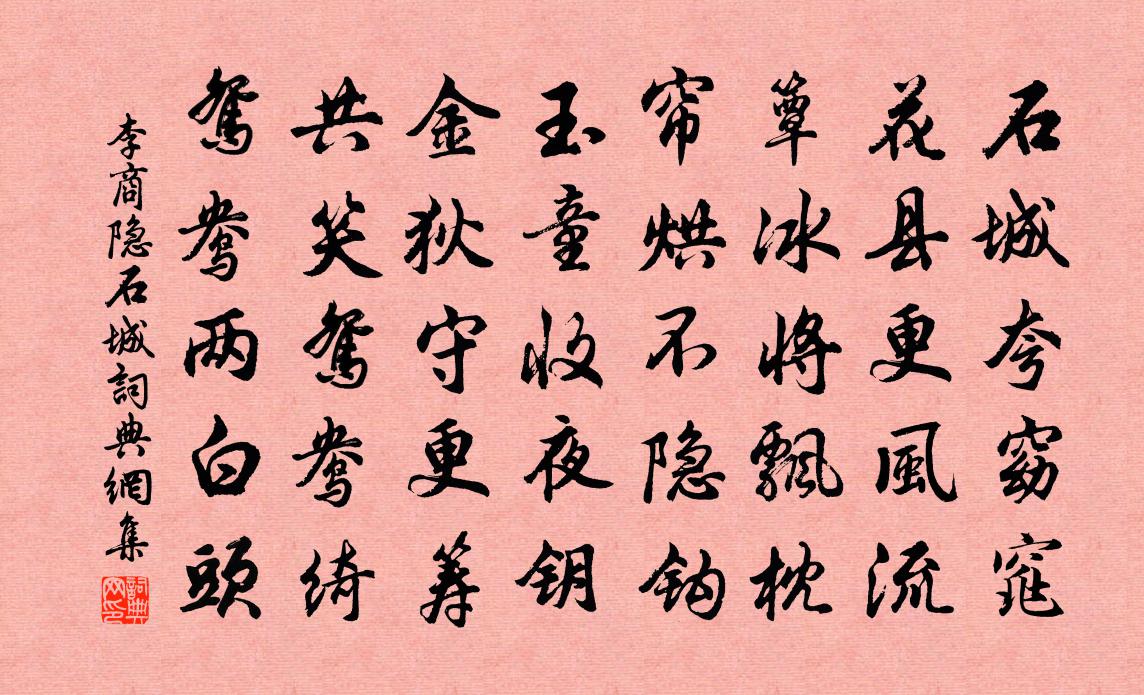 石城夸窈窕
花县更風流
簟冰将飘枕
帘烘不隐钩
玉童收夜钥
金狄守更筹
共笑鸳鸯绮
鸳鸯两白頭
李商隐石城詞典網集
詞典網印